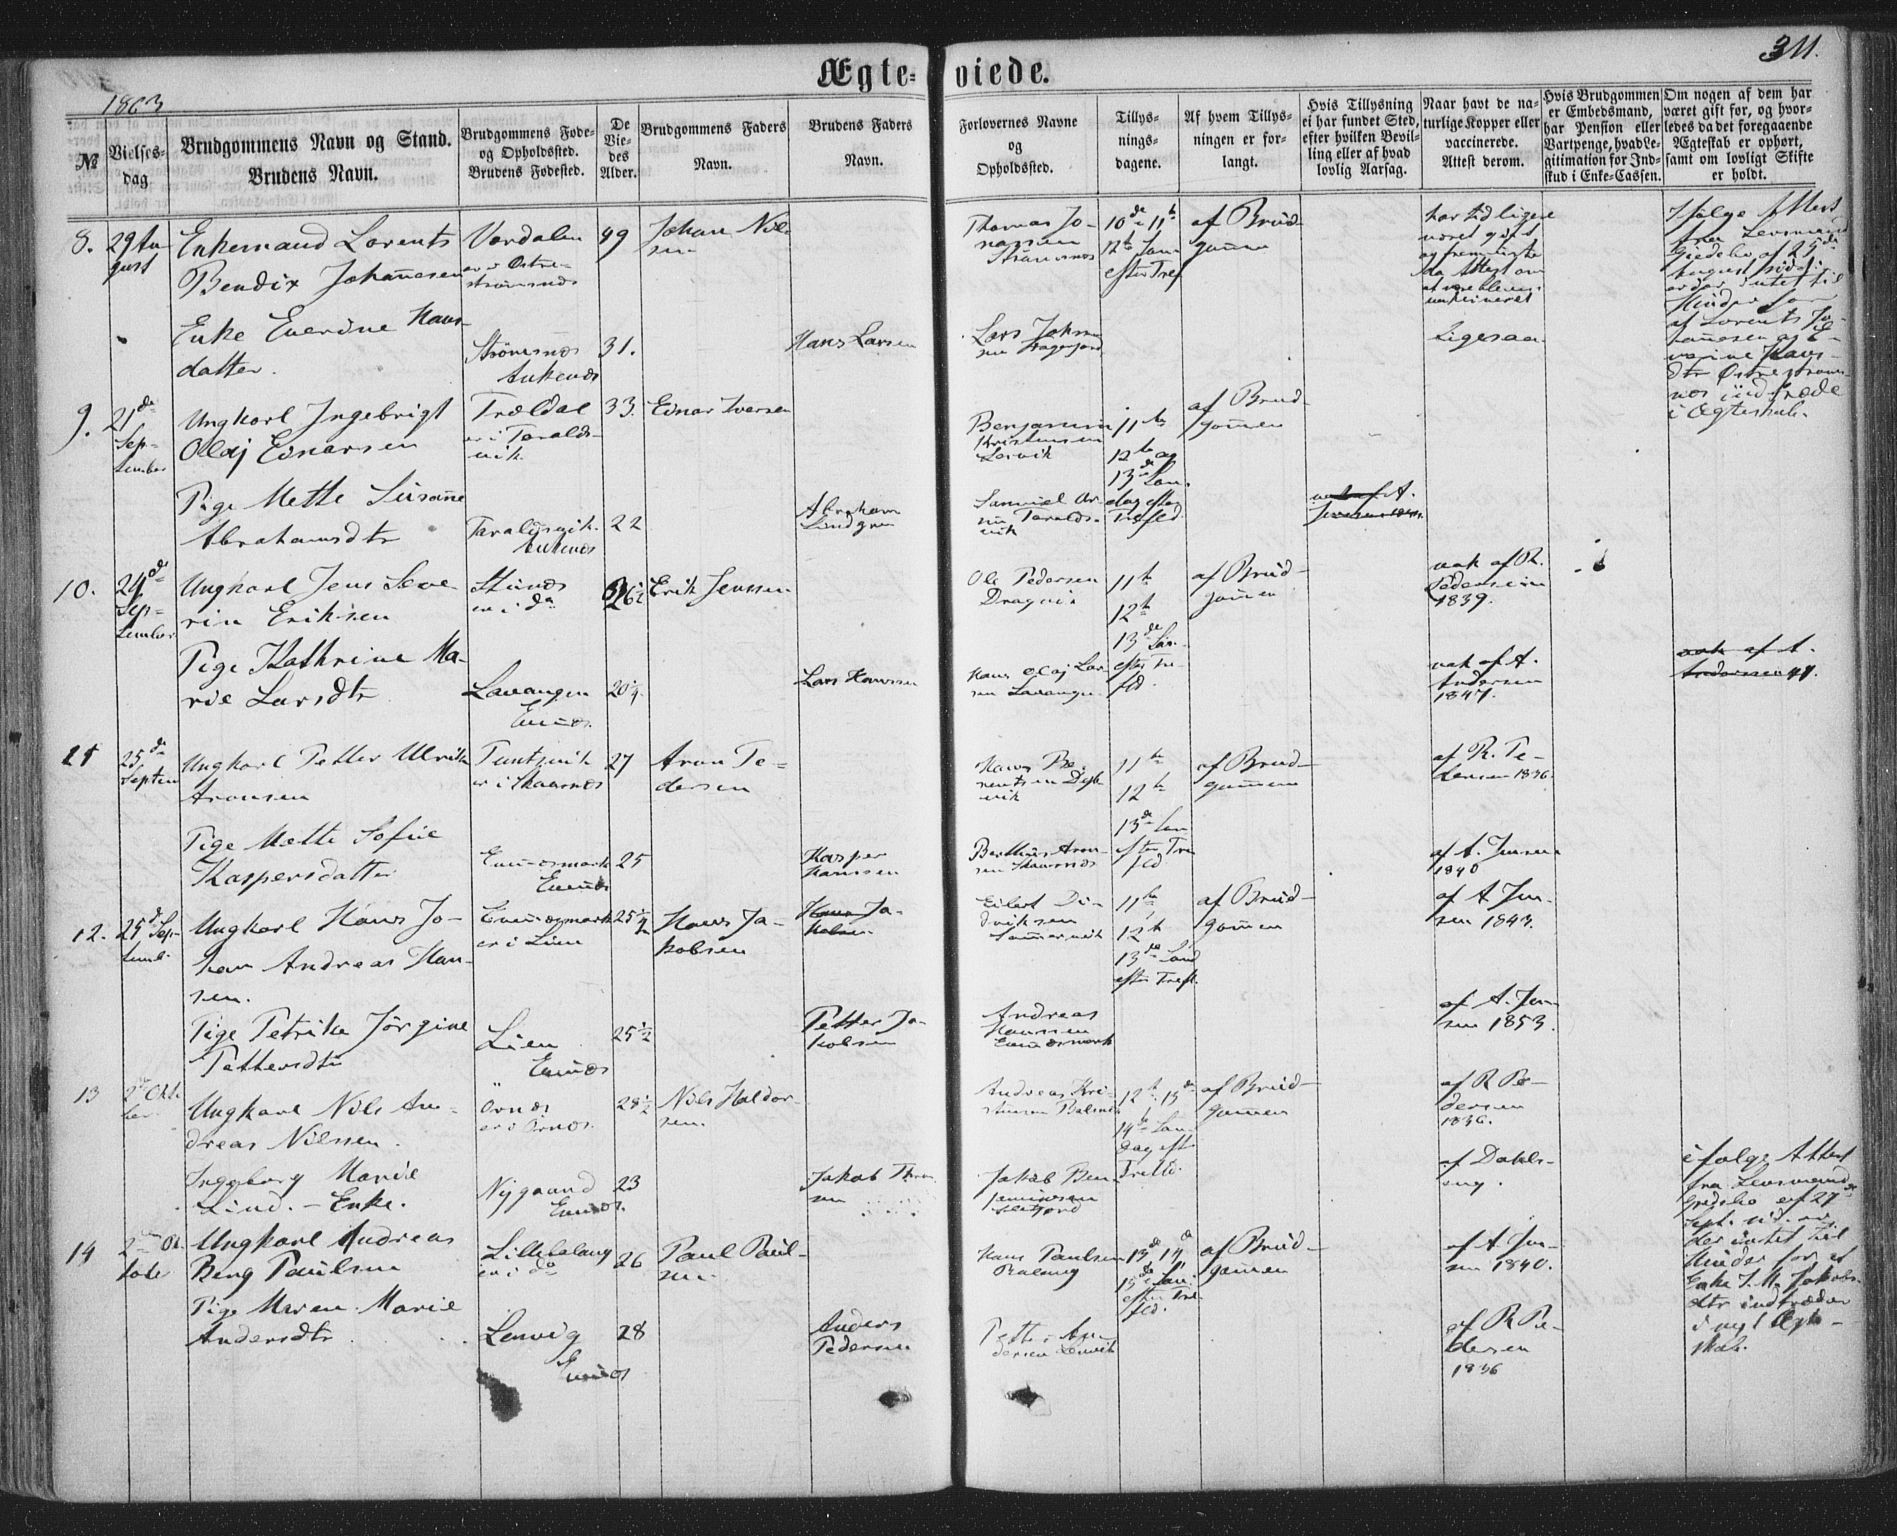 311.
Ægteviede.
1863
№
Vielses-
dag
Brudgommens Navn og Stand.
Brudens Navn.
Brudgommens Føde-
og Opholdssted.
Brudens Fødested.
De
Vie-
des
Alder.
Brudgommens Faders
Navn.
Brudens Faders
Navn.
Forlovernes Navne
og
Opholdssted.
Tillys-
nings-
dagene.
Af hvem Tillys-
ningen er for-
langt.
Hvis Tillysning
ei har fundet Sted,
efter hvilken Bevil-
ling eller af hvad
lovlig Aarsag.
Naar havt de na-
turlige Kopper eller
vaccinerede.
Attest derom.
Hvis Brudgommen
er Embedsmand,
har Pension eller
Vartpenge, hvad Le-
gitimation for Ind-
skud i Enke-Cassen.
Om nogen af dem har
været gift før, og hvor-
ledes da det foregaaende
Ægteskab er ophørt,
samt om lovligt Skifte
er holdt.
8.
29 Au
gust
Enkemand Lorents
Bendix Johannesen
Vordalen
er i Østre-
strømsnæs
49
Johan Nil-
sen
Thomas Jo-
nassen
10de 11te
12te
efter Tref
af Brud-
gommen
har tidligere
været gift
Enke Everdine Hans-
datter.
Strømsnæs
Ankenæs
31.
Hans Larsen
Lars
Ligesaa
9.
21de
Sep-
tember
Ungkarl Ingebrigt
Olaj Einarsen
Trældal
er i Taralds-
vik.
33.
Einar Iversen
Benjamin
Kristensen
Leivik
11te
12te og
13de Søn-
dag efter
Trefld.
af Brud-
gommen
Pige Mette Susanne
Abrahamsdtr
Taraldsvik.
Ankenæs
22
Abraham
Lindgren
Samuel Ar-
Taralds-
vik
10.
24de
Sep-
tember
Ungkarl Jens Seve-
rin Eriksen
er i do
26½
Erik Jenssen
Ole Pedersen
Dragvik
11te
12te
13de Søn-
efter Tre-
fld.
af Brud-
gommen
vak af R.
Pedersen
1839.
Pige Kathrine Ma-
rie Larsdtr
Lavangen
Evenæs.
20¼
Lars Hanssen
Hans Olaj Lar-
sen Lavangen
vak af A.
Andersen
1847.
vak af A.
Andersen 47.
11
25de
Septem
Ungkarl Petter Ulrik
Aronsen
er i Skaarnæs
27
Aron Pe-
dersen
Hans Be-
rentsen
vik
11te
12te
13de Søn
efter Tre
fld
af Brud-
gommen
af R. Pe-
dersen 1836.
Pige Mette Sofie
Kaspersdatter
Evenæsmark
Evenæs
25
Kasper
Hanssen
Berthius Aron-
sen Skaarnæs
af A. Jensen
1840
12.
25de Sep-
temb.
Ungkarl Hans Jo-
han Andreas Han-
sen.
Evenæsmark
er i Lien
25¼
Hans Ja-
kobsen
Hans Ja-
kobsen
Eilert Di-
driksen
11te
12te
13de Sønd
efter Trefl.
af Brud-
gommen
af A Jen-
sen 1843.
Pige Petrike Jørgine
Pettersdtr
Lien
Evenæs
25½
Petter Ja-
kobsen
Andreas
Hanssen
Evenæsmark
af A. Jen-
sen 1853.
13
2de Okt.
ber
Ungkarl Nils An-
dreas Nilssen.
Örnæs
er i Örnæs.
28½
Nils Haldor-
sen.
Andreas Kri-
stensen
12te 13de
14de Søn-
dag eft.
Trefld.
af Brud-
gommen
af R Pe-
dersen
1836.
Ingeborg Marie
Lind. – Enke.
Nygaard
Evenæs.
23
Jakob
Jakob Ben
jaminsen
af Dahls-
eng.
ifølge Attest
fra Lensmand
af 27de
Sept.
der intet til
Hinder for at
Enke I. M. Jakobs-
dtr indtræder
i nyt Ægte-
skab.
14
2den Ok
tober
Ungkarl Andreas
Berg Paulsen
Lillebalang
er i do
26
Paul Paul-
sen.
Hans Paulsen
Balang
13de 14de
15de Søn.
efter Tre-
fld.
af Brud-
gommen
af A. Jen-
sen 1840.
Pige Maren Marie
Andersdtr
Lenvig
Evenæs
28
Anders
Pedersen
Petter An-
dersen Lenvik
af R Pe-
dersen
1836